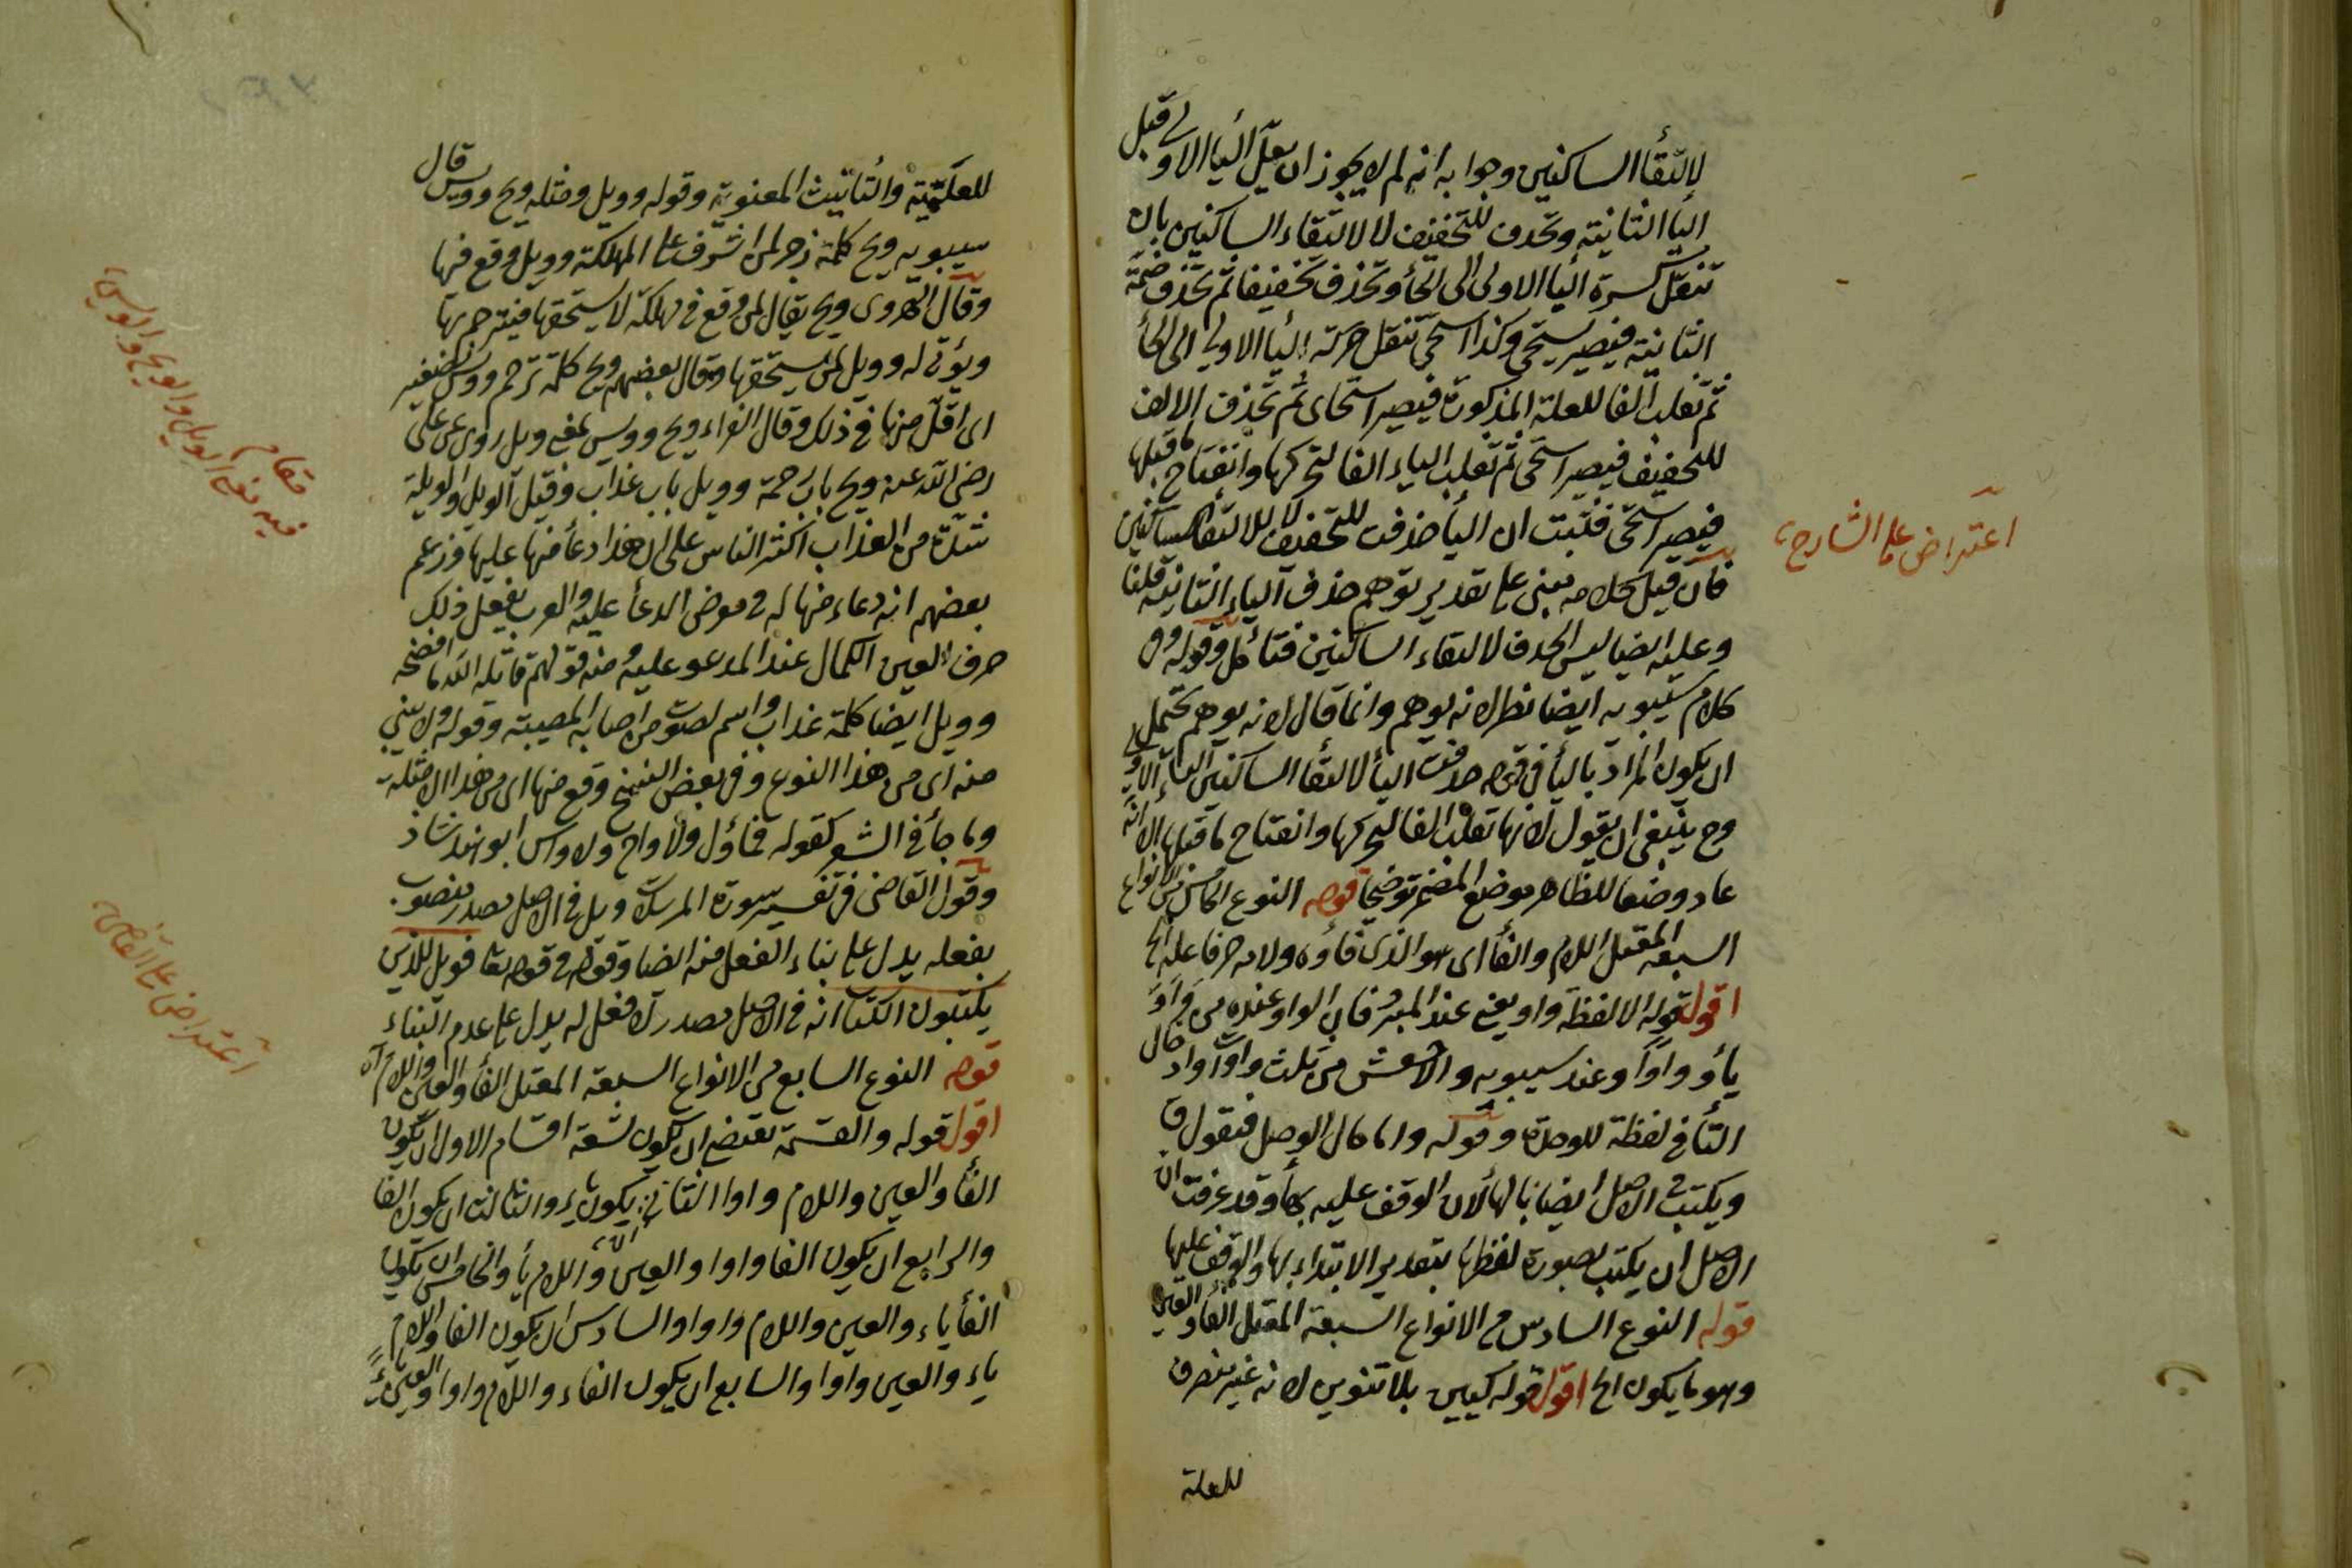 لالتقأ الساكنين وجوابه انه لم لا يجوز ان يعل اليا الاولى قبل
اليا الثانية وتحذف للتخفيف لا لالتقاء الساكنين بان
تنقل كسرة اليا الاولى الى الحأ وتحذف تخفيفا ثم تحذف ضمة
الثانية فيصير يستحي وكذا استحى تنقل حركة اليا الاولى الى الحأ
ثم تقلب الفا للعلة المذكورة فيصير استحاى ثم تحذف الالف
للتخفيف فيصير استحى ثم تقلب الياء الفا لتحركها وانفتاح ما قبلها
فيصير استحى فثبت ان اليأ حذفت للتخفيف لا لالتقأ الساكنين
فان قيل كلامه مبنى على تقدير توهم حذف الياء الثانية قلنا
وعليه ايضا ليس الحذف لالتقاء الساكنين فتأمل وقوله وفى
كلام سيبويه ايضا نظر لانه يوهم وانما قال لانه يوهم تحتمل
ان يكون المراد باليأ فى قوله حذفت اليأ لالتقأ الساكنين الياء الاولى
وح ينبغى ان يقول لانها تقلب الفا لتحركها وانفتاح ما قبلها الا انه
عاد وضعا للظاهر موضع المضمر توضيحا قوله النوع الخامس من الانواع
السبعة المعتل اللام والفأ اى هو الذى فاؤه ولامه حرفا علة الخ
اقول قوله الا لفظة واو يعنى عند المبرد فان الواو عنده من واو
يأو واوا وعند سيبويه والاخفش من ثلث واوات وادخال
التأ فى لفظة للوحدة وقوله واما حال الوصل فتقول ق
ويكتب فى الاصل ايضا بالهأ لان الوقف عليه بهأ وقد عرفت ان
الاصل ان يكتب بصورة لفظها بتقدير الابتداء بها والوقف عليها
قوله النوع السادس من الانواع السبعة المعتل الفأ والعين
وهو ما يكون الخ اقول قوله كيين بلا تنوين لانه غير منصرف
للعلمية
اعتراض على الشارح
للعلمية والتأنيث المعنوية وقوله وويل ومثله ويح وويس قال
سيبويه ويح كلمة زجر لمن اشرف على المهلكة وويل وقع فيها
وقال الهروى ويح يقال لمن وقع فى مهلكة لا يستحقها فيترحم بها
له وويل لمن يستحقها وقال بعضهم ويح كلمة ترحم وويس تصغير
اى اقل منها فى ذلك وقال الفراء ويح وويس بمعنى ويل روى عن على
رضى الله عنه ويح باب رحمة وويل باب عذاب وقيل الويل والويلة
شدة من العذاب اكثر الناس على ان هذا دعأ منها عليها وزعم
بعضهم انه دعاء منها له فى موضع الدعأ عليه والعرب يفعل ذلك
صرف العين الكمال عند المدعو عليه ومنه قولهم قاتله الله ما افصحه
وويل ايضا كلمة عذاب واسم لصوت من اصابه المصيبة وقوله ولا يبنى
منه اى من هذا النوع وفى بعض النسخ وقع منها اى من هذا الامثلة
وما جأ فى الشعر كقوله فما وال ولا واح ولا واس ابو هند شاذ
وقول القاضى فى تفسير سورة المرسلات ويل فى الاصل مصدر منصوب
بفعله يدل على بناء الفعل منه ايضا وقوله فى قوله تعا فويل للذين
يكتبون الكتاب انه فى الاصل مصدر لا فعل له يدل على عدم البناء
قوله النوع السابع من الانواع السبعة المعتل الفأ والعين واللام اه
اقول قوله والقسمة تقتضى ان تكون تسعة اقسام الاول ان يكون
الفأ والعين واللام واوا الثانى ان يكون ياء والثالث ان يكون الفا
والرابع ان يكون الفا واوا والعين واللام يأ والخامس ان يكون
الفأ ياء والعين واللام واوا والسادس ان يكون الفا واللام
ياء والعين واوا والسابع ان يكون الفاء واللام واوا والعين ياء
مقام
فيه معنى الويل والويح والويس
اعتراض على القاضى